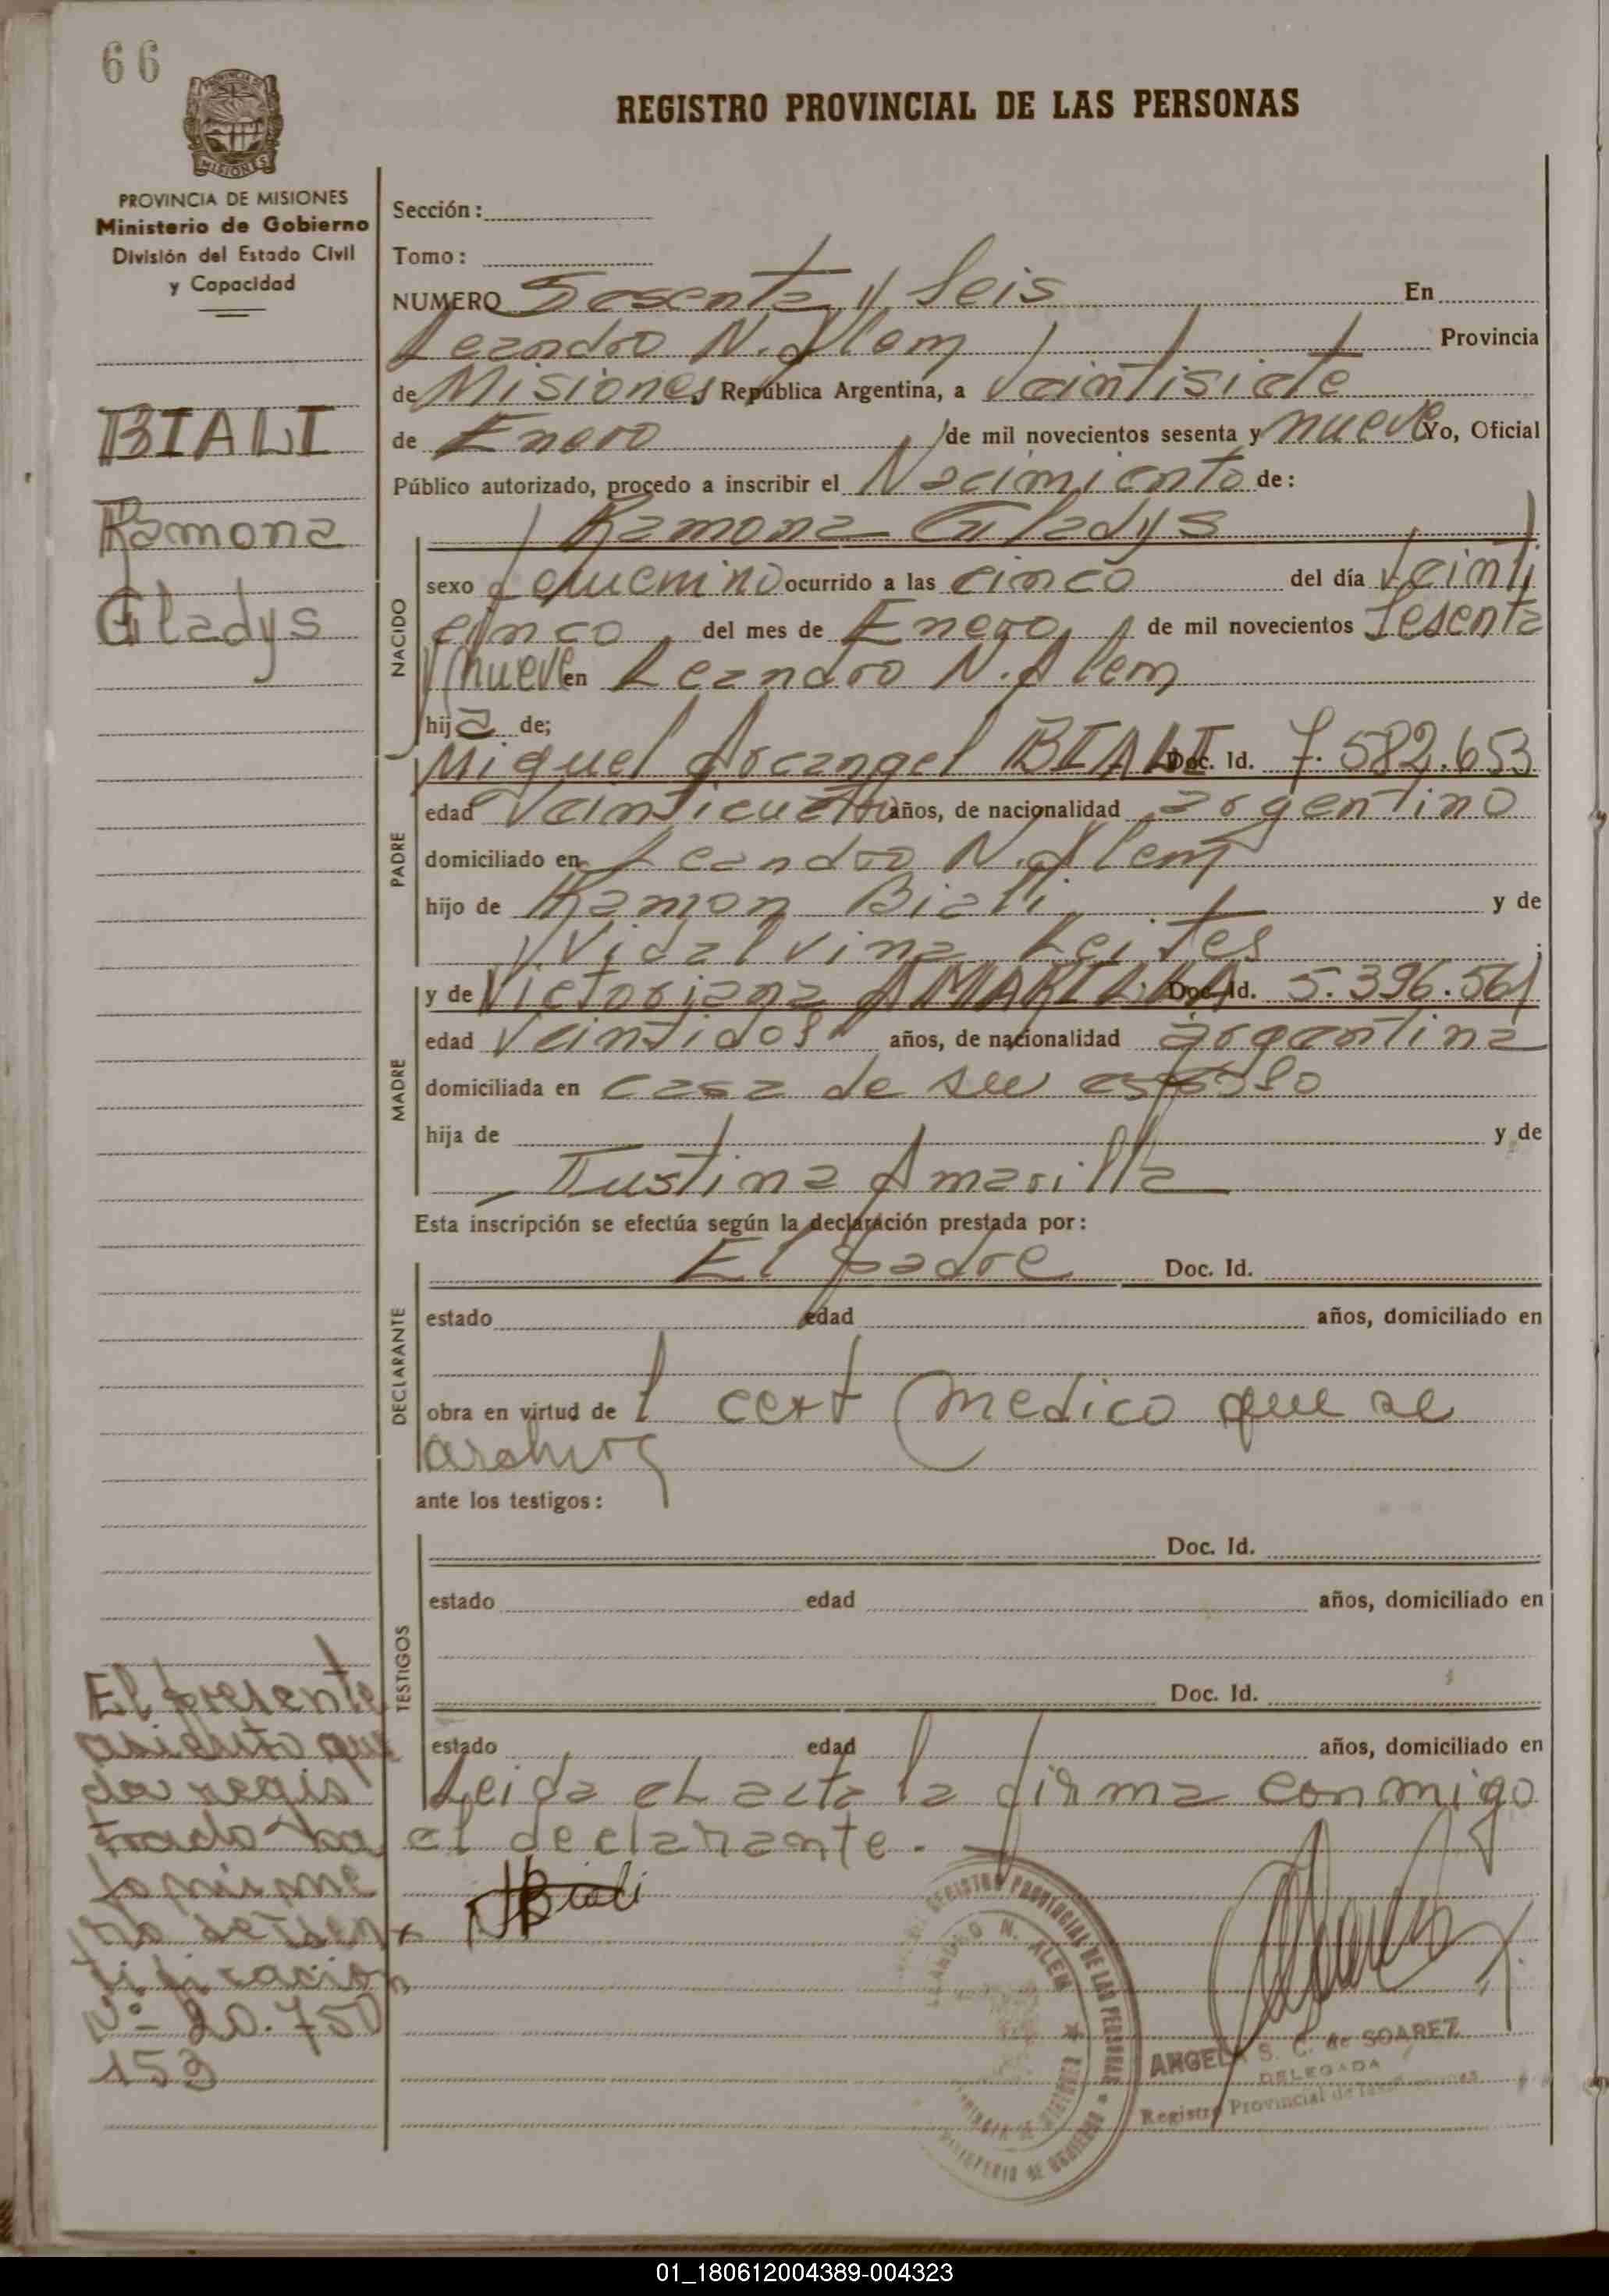 66
PROVINCIA DE MISIONES
Ministerio de Gobierno
División del Estado Civil
y Capacidad
BIALI
Ramona
Gladys
REGISTRO PROVINCIAL DE LAS PERSONAS
Sección:
Tomo:
NUMERO Sesenta y Seis En
Leandro N. Alem Provincia
de Misiones República Argentina, a Veintisiete
de Enero de mil novecientos sesenta y nueve Yo, Oficial
Público autorizado, procedo a inscribir el Nacimiento de:
Ramona Gladys
NACIDO
sexo femenino ocurrido a las cinco del día Veinti
cinco del mes de Enero de mil novecientos Sesenta
y nueve en Leandro N. Alem
hija de;
PADRE
Miguel Arcangel BIALI Doc. Id. 7.582.653
edad Veinticuatro años, de nacionalidad argentino
domiciliado en Leandro N. Alem
hijo de Ramon Biali y de
Vidalvina Leites
MADRE
y de Victoriana AMARILLA Doc. Id. 5.396.561
edad Veintidos años, de nacionalidad argentina
domiciliada en casa de su esposo
hija de y de
Justina Amarilla
Esta inscripción se efectúa según la declaración prestada por:
DECLARANTE
El padre Doc. Id.
estado edad años, domiciliado en
obra en virtud de l cert medico que se
archiva
ante los testigos:
TESTIGOS
Doc. Id.
estado edad años, domiciliado en
Doc. Id.
estado edad años, domiciliado en
Leida el acta la firma conmigo
el declarante.
Biali
El presente
asiento que
da regis
trado ba
jo
de Iden
tificación
Nº 20.750
153
REGISTRO PROVINCIAL DE LAS PERSONAS
LEANDRO N. ALEM
MINISTERIO DE GOBIERNO
ANGELA S. C. de SOAREZ
DELEGADA
Registro Provincial de las Personas
01_180612004389-004323